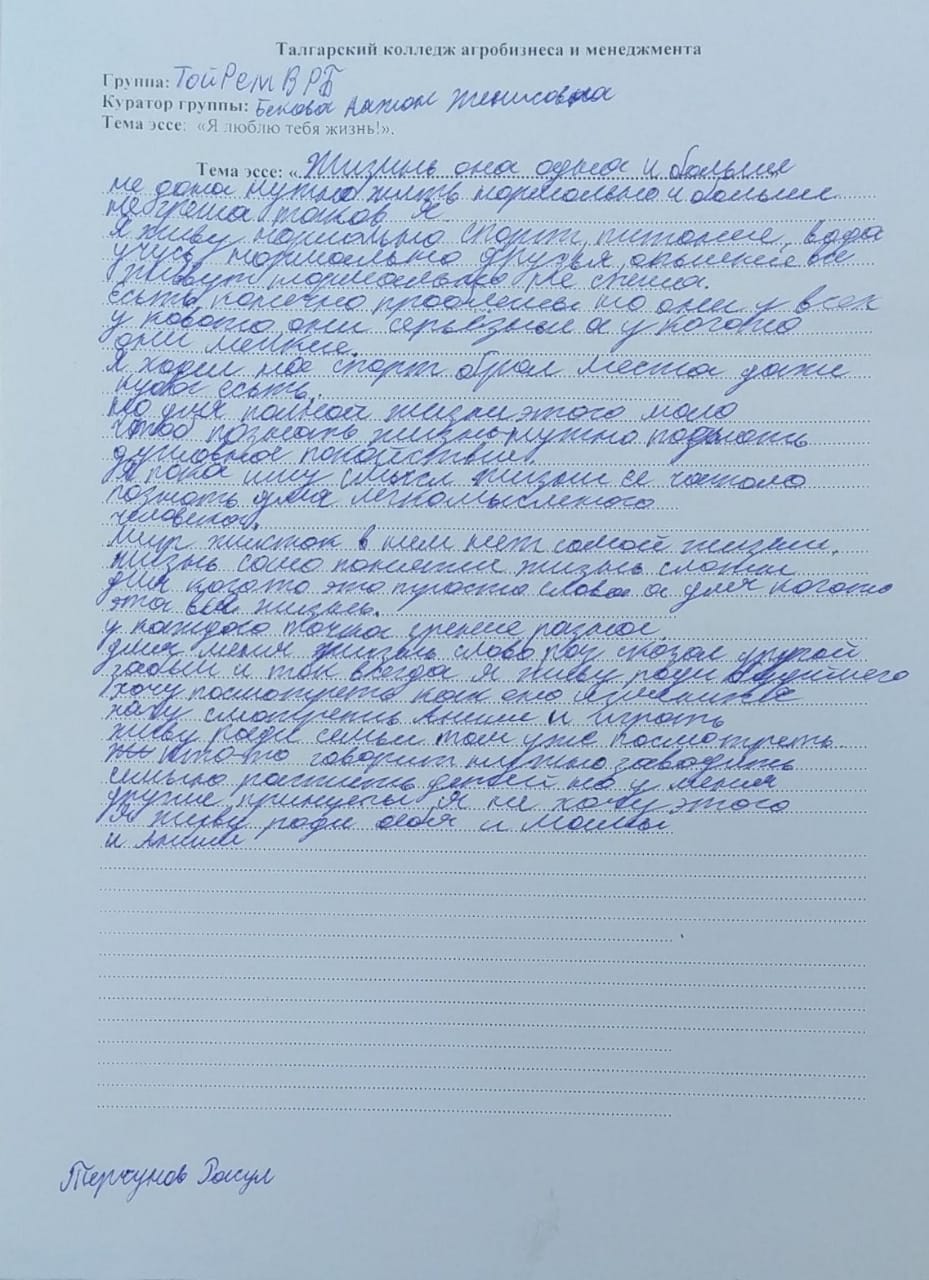 Талгарский колледж агробизнеса и менеджмента
Группа: ТойРемВРБ
Куратор группы: Бекова Анжан Женисовна
Тема эссе: «Я люблю тебя жизнь!».
Тема эссе: « Жизинь она одна и больше
не дана нужно жить нормально и больши
не греша таков Я
Я живу нормально спорт, питание, вода
учусь нормально друзья, все
живут нормально не спеша.
Есьть конечно проблемы но они у всех
у ковото они серьёзные а у когото
они мелкие.
Я хожу на спорт места даже
есьть.
но для полной жизни этого мало
чтоб познать жизнь нужно
духовное
Я пока ищу смысл жизни её начало
познать для легкомысленого
человека.
Мир жисток в нем нет самой жизни.
жизнь само понятии жизнь сложни
для когото это проста слова а для когото
эта вся жизнь.
у каждого точка зрение разное.
для меня жизнь слово раз сказал другой
забыл и так всегда я живу ради будущего
хочу посмотреть как оно изменится
хочу смотреть Аниме и играть
живу ради семьи том уже посмотреть
кто-то говорит нужно заводить
семью растить детей но у меня
другие принцепы Я не хочу этого
Я живу ради себя и мамы
и Аниме
Расул